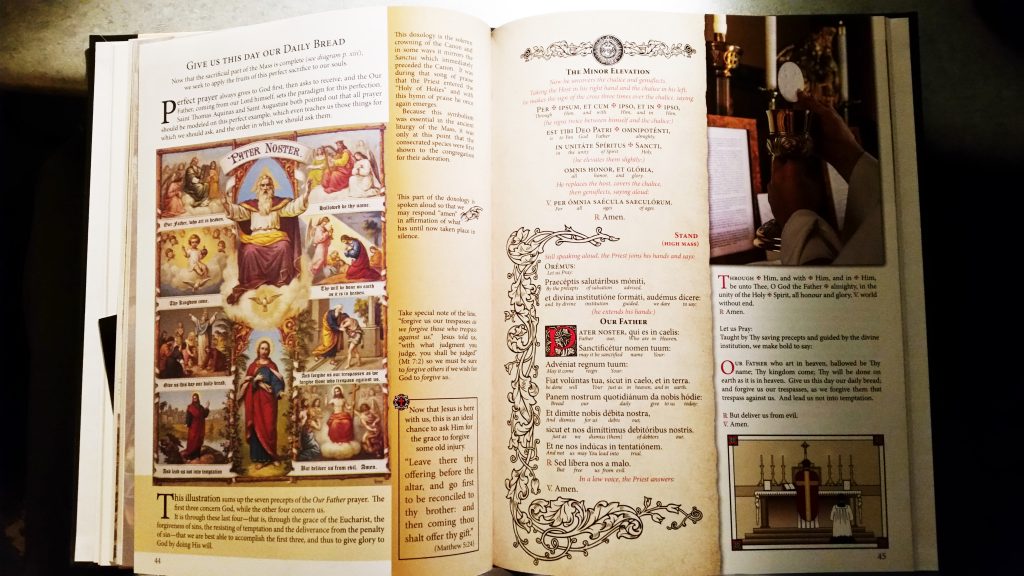 Give us this day our Daily Bread
Now that the sacrificial part of the Mass is complete (see diagram p. xiii),
we seek to apply the fruits of this perfect sacrifice to our souls.
Perfect prayer always gives to God first, then asks to receive, and the Our
Father, coming from our Lord himself, sets the paradigm for this perfection.
Saint Thomas Aquinas and Saint Augustine both pointed out that all prayer
should be modeled on this perfect example, which even teaches us those things for
which we should ask, and the order in which we should ask them:
PATER NOSTER.
Our Father, who art in heaven,
Hallowed be thy name.
Thy Kingdom come,
Thy will be done on earth
as it is in heaven.
Give us this day our daily bread,
And forgive us our trespasses as we
forgive those who trespass against us.
And lead us not into temptation
But deliver us from evil. Amen.
This illustration sums up the seven precepts of the Our Father prayer. The
first three concern God, while the other four concern us.
It is through these last four—that is, through the grace of the Eucharist, the
forgiveness of sins, the resisting of temptation and the deliverance from the penalty
of sin—that we are best able to accomplish the first three, and thus to give glory to
God by doing His will.
44
This doxology is the solemn
crowning of the Canon and
in some ways it mirrors the
Sanctus which immediately
preceded the Canon. It was
during that song of praise
that the Priest entered the
"Holy of Holies" and with
this hymn of praise he once
again emerges.
Because this symbolism
was essential in the ancient
liturgy of the Mass, it was
only at this point that the
consecrated species were first
shown to the congregation
for their adoration.
This part of the doxology is
spoken aloud so that we
may respond "amen"
in affirmation of what
has until now taken place in
silence.
Take special note of the line,
"forgive us our trespasses as
we forgive those who trespass
against us." Jesus told us,
"with what judgment you
judge, you shall be judged"
(Mt 7:2) so we must be sure
to forgive others if we wish for
God to forgive us.
Now that Jesus is here
with us, this is an ideal
chance to ask Him for
the grace to forgive
some old injury.
"Leave there thy
offering before the
altar, and go first
to be reconciled to
thy brother: and
then coming thou
shalt offer thy gift."
(Matthew 5:24)
The Minor Elevation
Now he uncovers the chalice and genuflects.
Taking the Host in his right hand and the chalice in his left,
he makes the sign of the cross three times over the chalice, saying:
Per ✠ ipsum, et cum ✠ ipso, et in ✠ ipso,
through Him, and with Him, and in Him,
(he signs twice between himself and the chalice:)
est tibi Deo Patri ✠ omnipoténti,
is to You God Father almighty,
in unitáte Spíritus ✠ Sancti,
in the unity of Spirit Holy,
(he elevates them slightly:)
omnis honor, et glória,
all honor, and glory.
He replaces the host, covers the chalice,
then genuflects, saying aloud:
V. per ómnia saécula saeculórum.
For all ages of ages.
R. Amen.
Stand
(high mass)
Still speaking aloud, the Priest joins his hands and says:
Orémus:
Let us Pray:
Praecéptis salutáribus móniti,
By the precepts of salvation advised,
et divína institutióne formáti, audémus dícere:
and by divine institution guided, we dare to say:
(he extends his hands:)
Our Father
Pater noster, qui es in caelis:
Father our, Who are in Heaven.
Sanctificétur nomen tuum:
may it be sanctified name Your:
Advéniat regnum tuum:
May it come reign Your:
Fiat volúntas tua, sicut in caelo, et in terra.
be done will Your just as in heaven, and in earth.
Panem nostrum quotidiánum da nobis hódie:
Bread our daily give to us today:
Et dimítte nobis débita nostra,
And dismiss for us debts our,
sicut et nos dimíttimus debitóribus nostris.
just as we dismiss (them) of debtors our.
Et ne nos indúcas in tentatiónem.
And not us may You lead into trial.
R. Sed líbera nos a malo.
But free us from evil.
In a low voice, the Priest answers:
V. Amen.
Through ✠ Him, and with ✠ Him, and in ✠ Him,
be unto Thee, O God the Father ✠ almighty, in the
unity of the Holy ✠ Spirit, all honour and glory, V. world
without end.
R. Amen.
Let us Pray:
Taught by Thy saving precepts and guided by the divine
institution, we make bold to say:
Our Father who art in heaven, hallowed be Thy
name; Thy kingdom come; Thy will be done on
earth as it is in heaven. Give us this day our daily bread;
and forgive us our trespasses, as we forgive them that
trespass against us. And lead us not into temptation.
R. But deliver us from evil.
V. Amen.
45